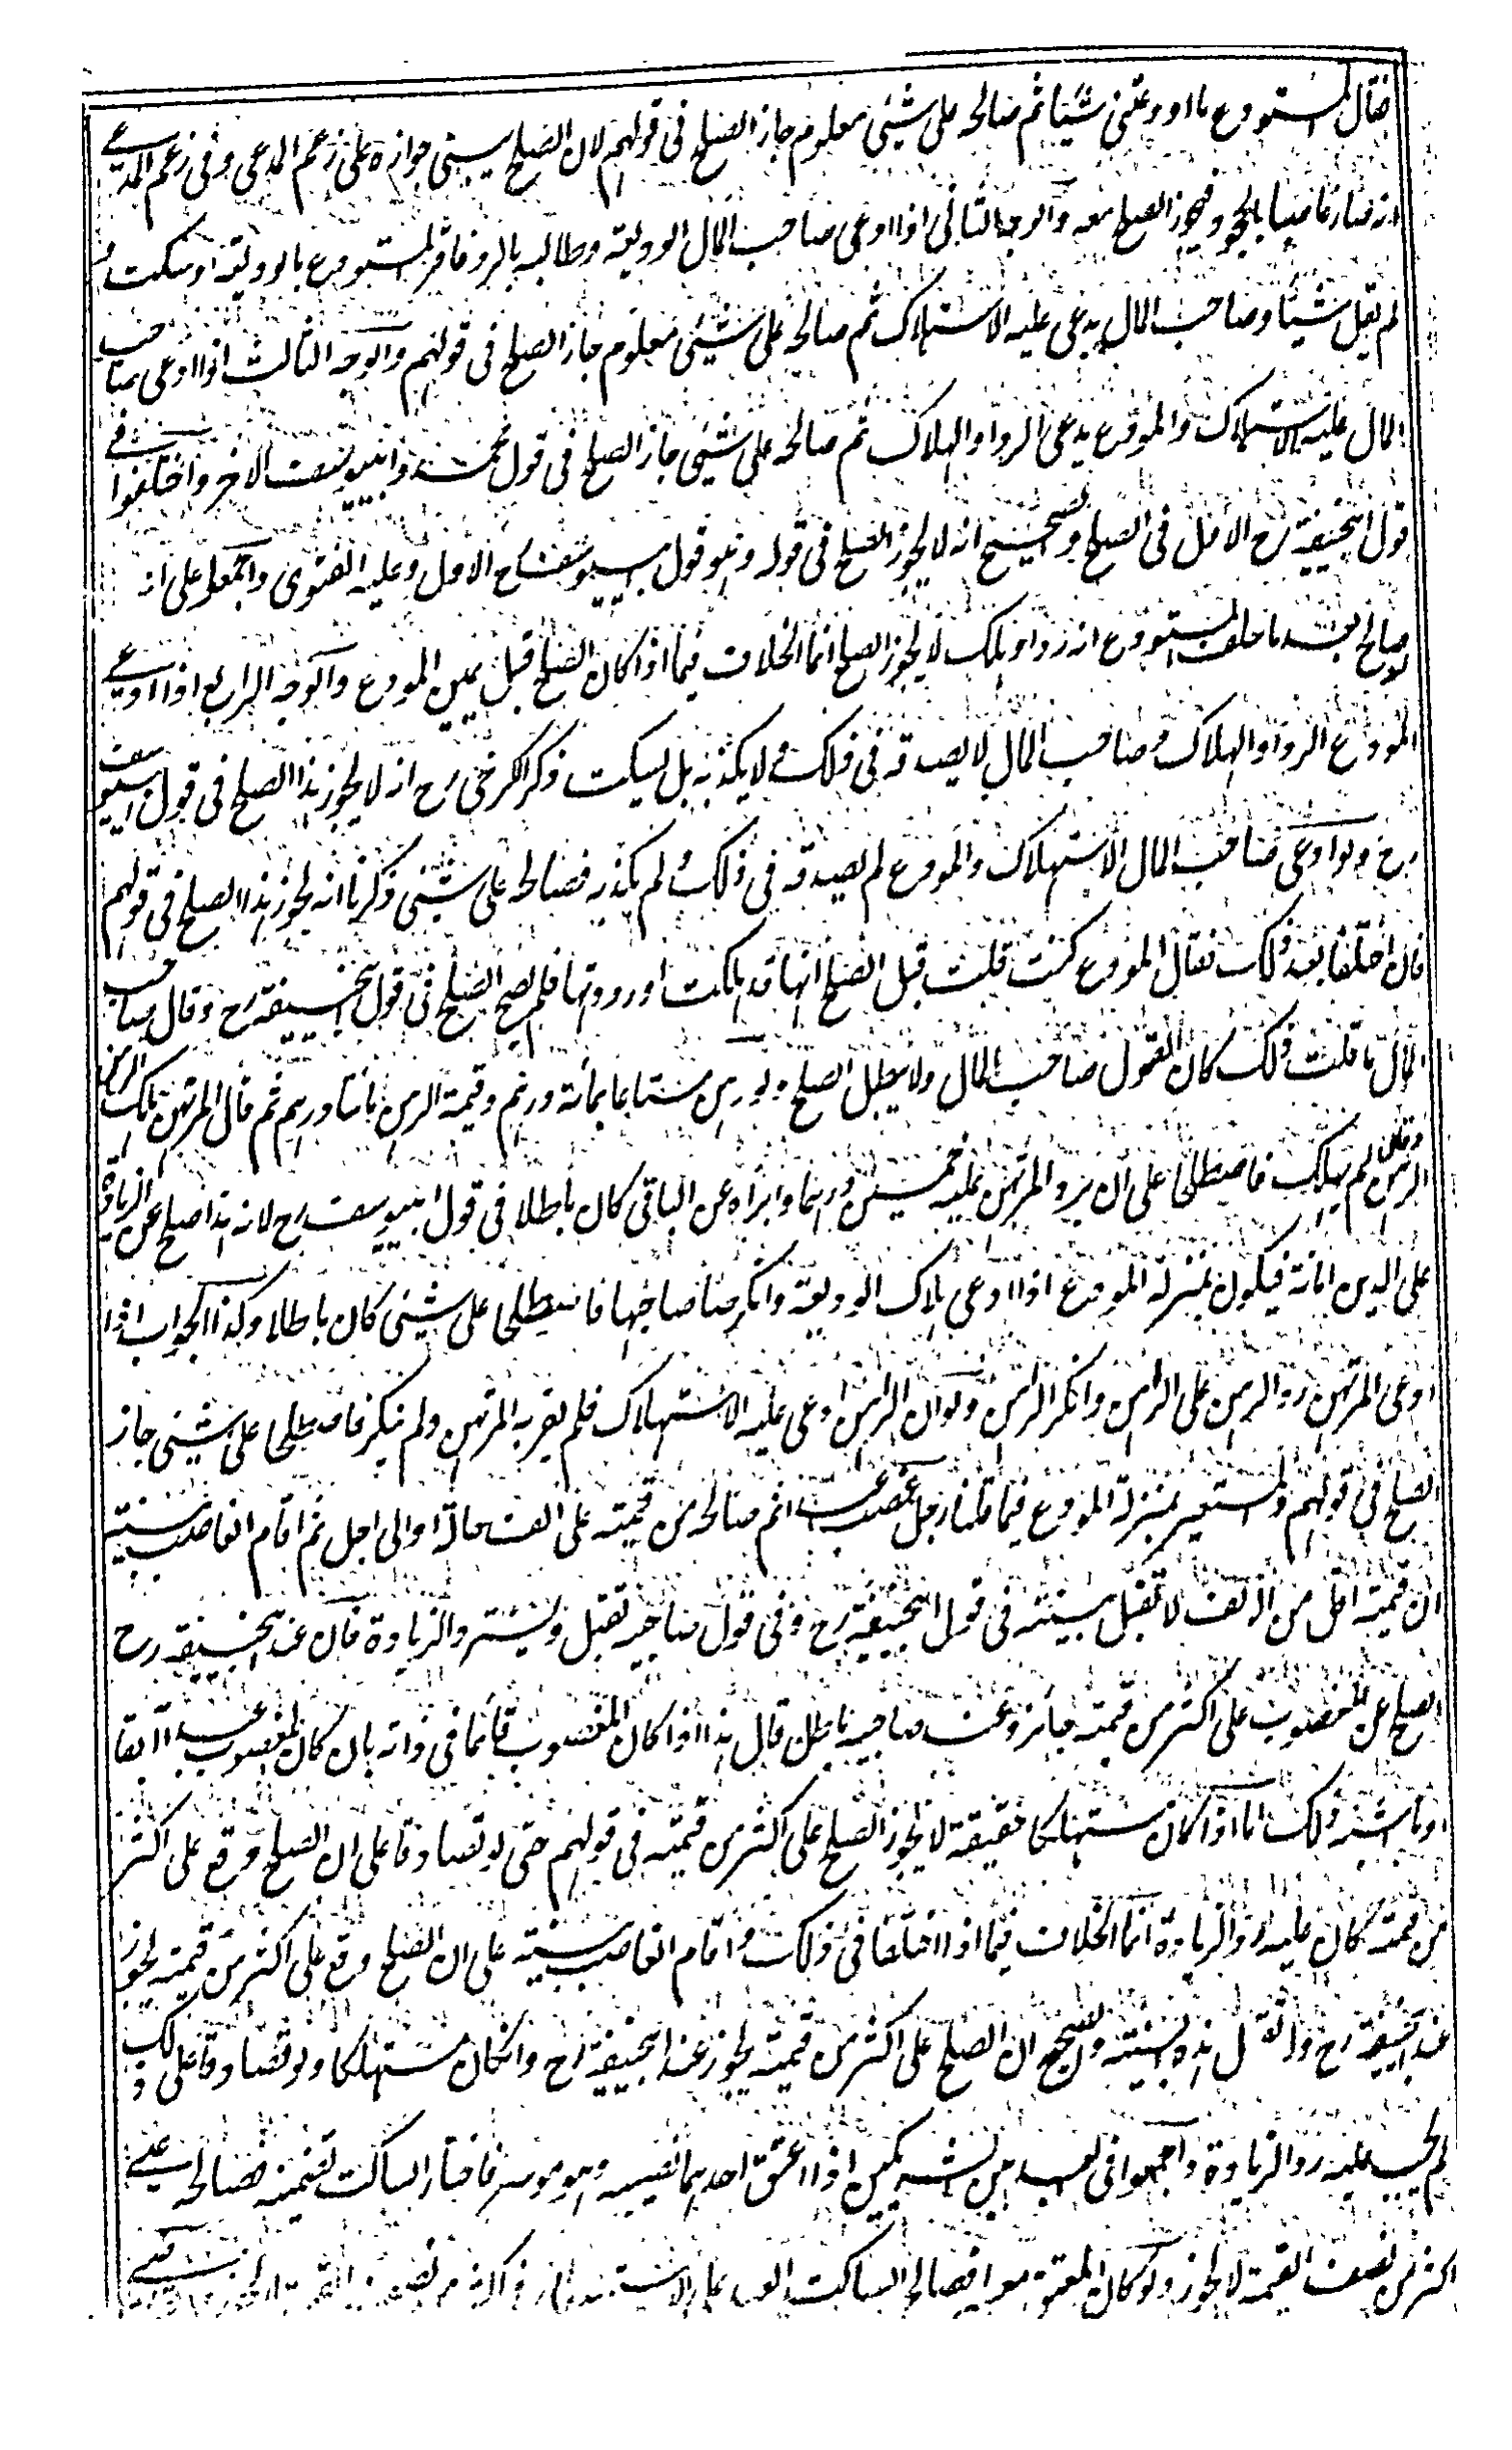 فقال المستودع ما اودعتنى شيئا ثم صالحه على شئى معلوم جاز الصلح فى قولهم لان الصلح يبتنى جوازه على زعم المدعى وفى زعم المدعے
انه صار غاصبا بالجحود فيجوز الصلح معه والوجه الثانى اذا ادعى صاحب المال الوديعة وطالبه بالرد فاقر المستودع بالوديعة او سكت و
لم يقل شيئا وصاحب المال يدعى عليه الاستهلاك ثم صالحه على شئى معلوم جاز الصلح فى قولهم والوجه الثالث اذا ادعى صاحب
المال عليه الاستهلاك والمودع يدعى الرد او الهلاك ثم صالحه على شئى جاز الصلح فى قول محمد وابيوسف الاخر واختلفوا فى
قول ابيحنيفة رح الاول فى الصلح والصحيح انه لا يجوز الصلح فى قوله وهو قول ابيوسف رح الاول وعليه الفتوى واجمعوا على انه
لو صالح بعد ما حلف المستودع انه رد او هلك لا يجوز الصلح انما الخلاف فيما اذا كان الصلح قبل يمين المودع والوجه الرابع اذا ادعے
المودع الرد او الهلاك وصاحب المال لا يصدقه فى ذلك ولا يكذبه بل يسكت ذكر الكرخى رح انه لا يجوز هذا الصلح فى قول ابيوسف
رح ولو ادعى صاحب المال الاستهلاك والمودع لم يصدقه فى ذلك ولم يكذبه فصالحه على شئى ذكرنا انه يجوز هذا الصلح فى قولهم
فان اختلفا بعد ذلك فقال المودع كنت قلت قبل الصلح انها قد هلكت او رددتها فلم يصح الصلح فى قول ابيحنيفة رح وقال صاحب
المال ما قلت ذلك كان القول صاحب المال ولا يبطل الصلح ولو رهن متاعا بمائة درهم وقيمة الرهن مائتا درهم ثم قال المرتهن هلك الرهن
وقال الراهن لم يهلك فاصطلحا على ان يرد المرتهن عليه خمسين درهما وابراه عن الباقى كان باطلا فى قول ابيوسف رح لانه هذا صلح عن الزيادة
على الدين امانة فيكون بمنزلة المودع اذا ادعى هلاك الوديعة وانكر صاحبها فاصطلحا على شئى كان باطلا وكذا الجواب اذا
ادعى المرتهن رد الرهن على الراهن وانكر الراهن ولو ان الراهن ادعى عليه الاستهلاك فلم يقر به المرتهن ولم ينكر فاصطلحا على شئى جاز
الصلح فى قولهم والمستعير بمنزلة المودع فيما قلنا رجل غصب ثم صالحه من قيمته على الف حالة او الى اجل ثم اقام الغاصب بينة
ان قيمته اقل من الالف لا تقبل بينته فى قول ابيحنيفة رح وفى قول صاحبيه تقبل ويسترد الزيادة فان عند ابيحنيفة رح
الصلح عن المغصوب على اكثر من قيمته جائز وعند صاحبيه باطل قال هذا اذا كان المغصوب قائما فى ذاته بان كان المغصوب عبدا ابقا
او ما اشبه ذلك اما اذا كان مستهلكا حقيقة لا يجوز الصلح على اكثر من قيمته فى قولهم حتى لو تصادقا على ان الصلح وقع على اكثر
من قيمته كان عليه رد الزيادة انما الخلاف فيما اذا اختلفا فى ذلك واقام الغاصب بينة على ان الصلح وقع على اكثر من قيمته يجوز
عند ابيحنيفة رح ولا تقبل هذه البينة والصحيح ان الصلح على اكثر من قيمته يجوز عند ابيحنيفة رح وان كان مستهلكا ولو تصادقا على ذلك
لم يجب عليه رد الزيادة واجمعوا فى العبد بين الشريكين اذا اعتق احدهما نصيبه وهو موسر فاختار الساكت تضمينه فصالحه على
اكثر من نصف القيمة لا يجوز ولو كان المعتق معسرا فصالح الساكت العبد